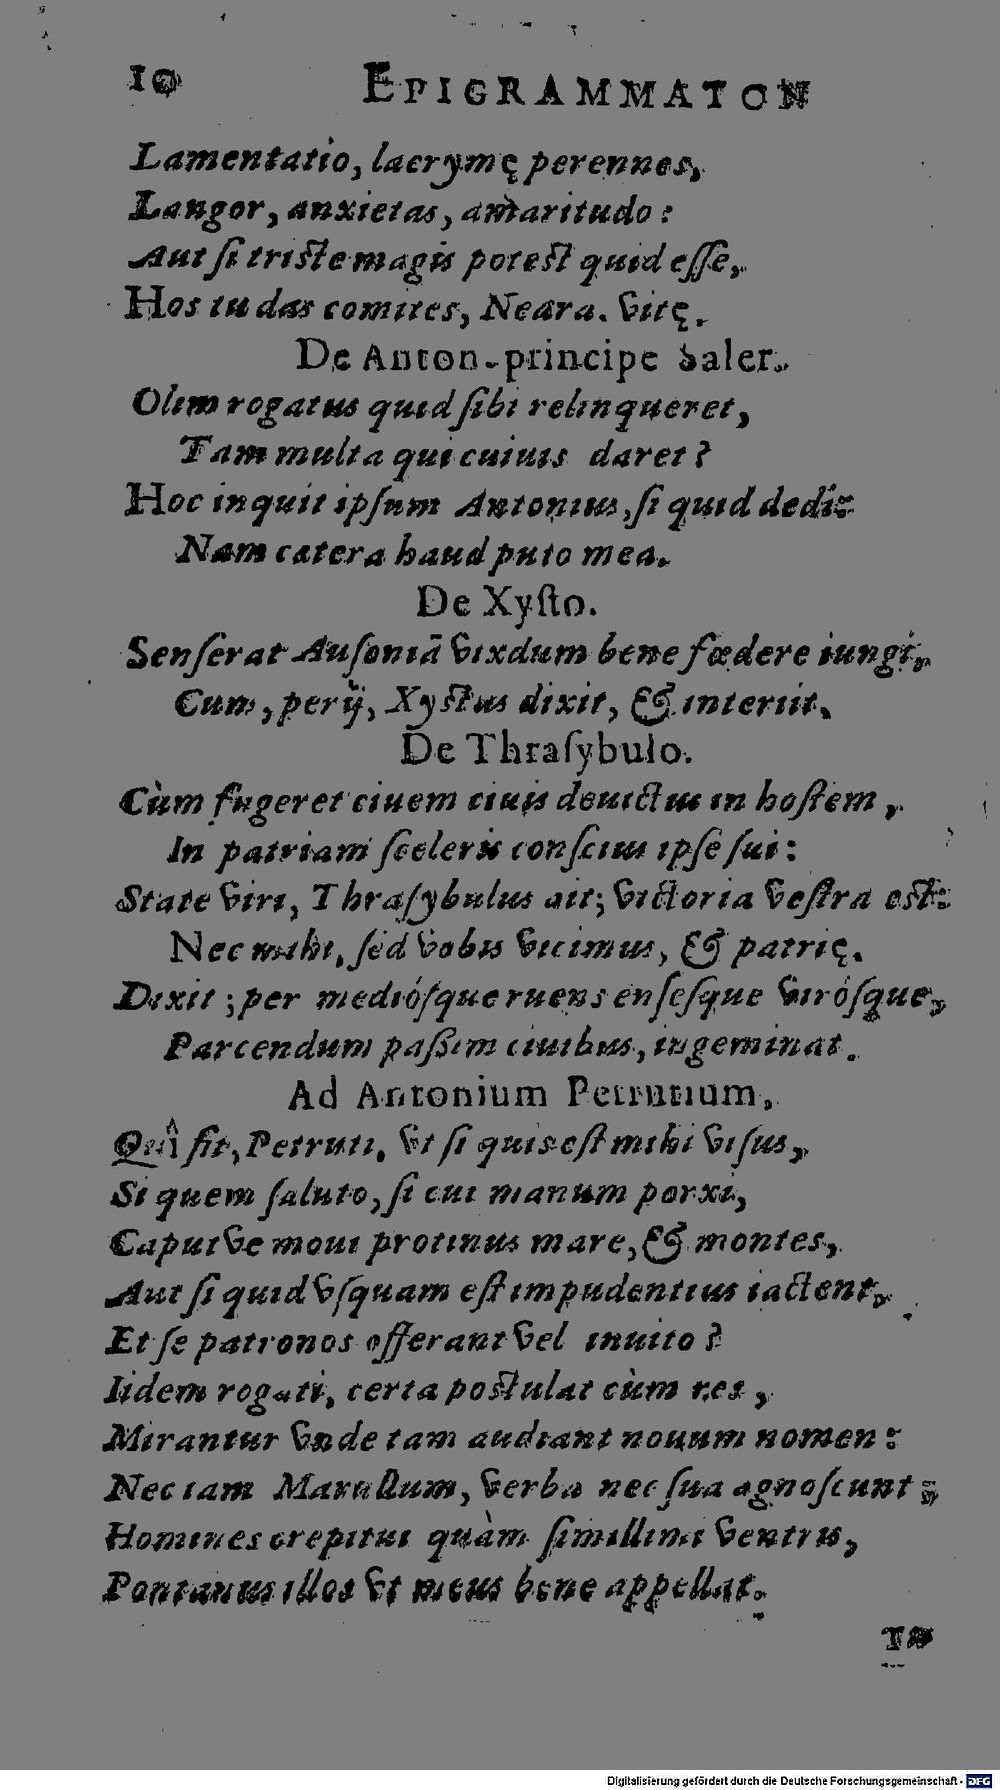 10 EPIGRAMMATON
Lamentatio, lacrymę perennes,
Langor, anxietas, amaritudo:
Aut ſi triste magis potest quid eſſe,
Hos tu das comites, Neæra. vitę.
De Anton. principe Saler.
Olim rogatus quid ſibi relinqueret,
Tam multa qui cuiuis daret?
Hoc inquit ipſum Antonius, ſi quid dedi:
Nam cætera haud puto mea.
De Xyſto.
Senſerat Auſoniā vixdum bene fœdere iungi,
Cum, perij, Xystus dixit, & interiit.
De Thraſybulo.
Cùm fugeret ciuem ciuis deuictus in hoſtem,
In patriam ſceleris conſcius ipſe ſui:
State viri, Thraſybulus ait; victoria veſtra est:
Nec mihi, ſed vobis vicimus, & patrię.
Dixit; per medióſque ruens enſeſque viróſque,
Parcendum paſſim ciuibus, ingeminat.
Ad Antonium Petrutium,
Quî fit, Petruti, vt ſi quis eſt mihi viſus,
Si quem ſaluto, ſi cui manum porxi,
Caputve moui protinus mare, & montes,
Aut ſi quid vſquam eſt impudentius iactent,
Et ſe patronos offerant vel inuito?
Iidem rogati, certa postulat cùm res,
Mirantur vnde tam audiant nouum nomen:
Nec iam Marullum, verba nec ſua agnoſcunt:
Homines crepitui quàm ſimillimi ventris,
Pontanus illos vt meus bene appellat.
Digitalisierung gefördert durch die Deutsche Forschungsgemeinschaft - DFG